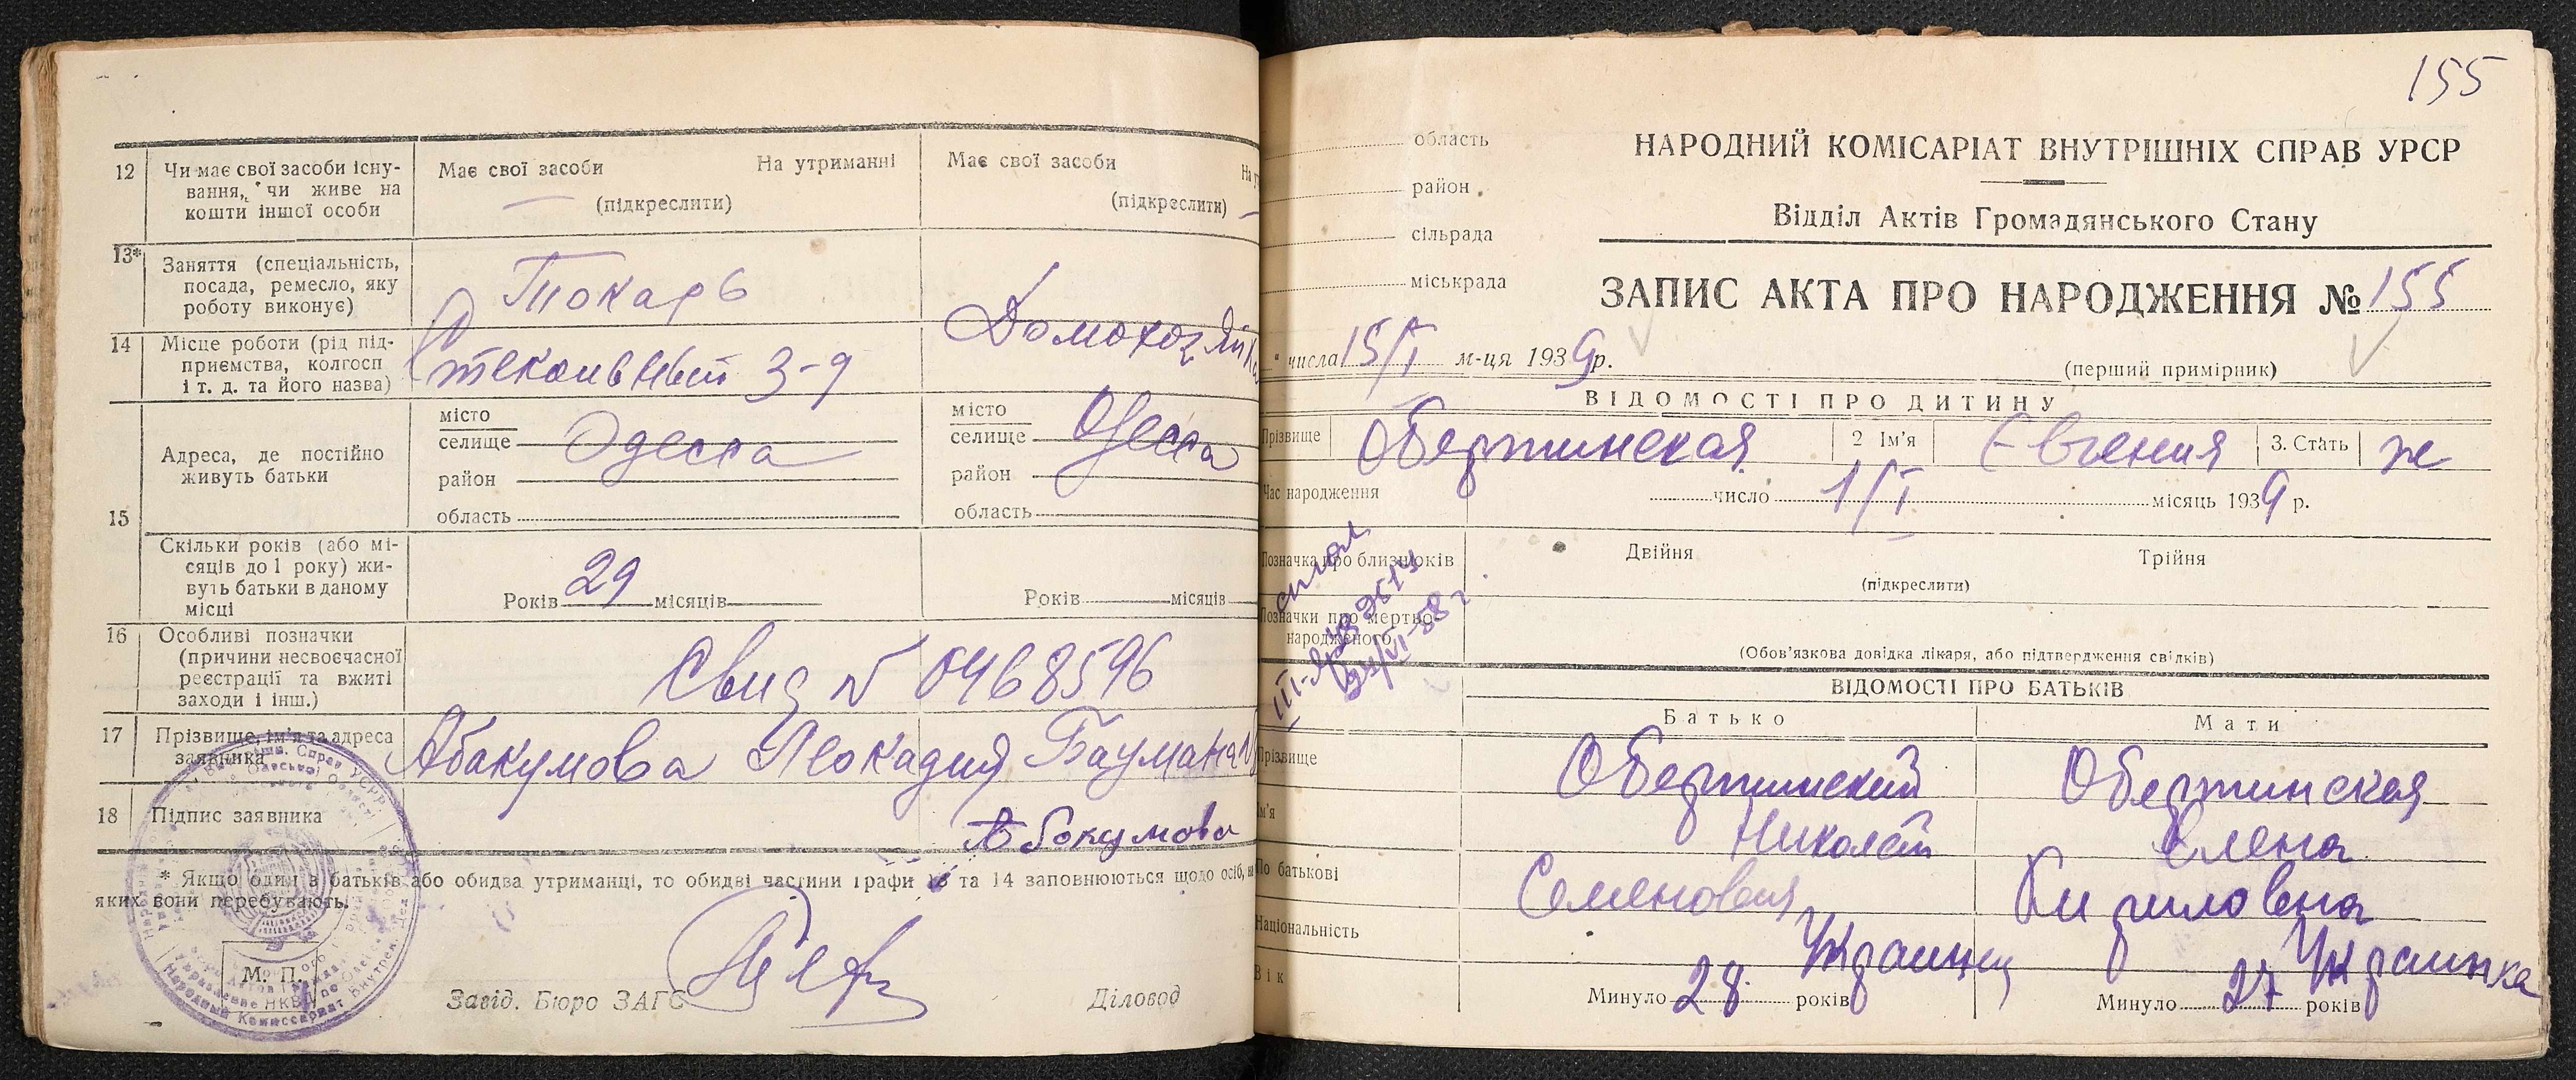 12 Чи має свої засоби існу-
вання, чи живе на
кошти іншої особи
Має свої засоби На утриманні
(підкреслити)
Має свої засоби
(підкреслити)
13* Заняття (спеціальність,
посада, ремесло, яку
роботу виконує)
Токарь
Домохозяйка
14 Місце роботи (рід під-
приємства, колгосп
і т. д. та його назва)
3-д
15 Адреса, де постійно
живуть батьки
місто
селище Одесса
район
область
місто
селище Одесса
район
область
Скільки років (або мі-
сяців до 1 року) жи-
вуть батьки в даному
місці
Років 29 місяців
Років місяців
16 Особливі позначки
(причини несвоєчасної
реєстрації та вжиті
заходи і інш.)
Свид № 0468596
17 Прізвище, ім'я та адреса
заявника
Абакумова Леокадия Баумана
18 Підпис заявника
Абокумова
* Якщо один з батьків або обидва утриманці, то обидві частини графи 13 та 14 заповнюються щодо осіб, на
яких вони перебувають.
М. П.
Завід. Бюро ЗАГС
Діловод
155
область
район
сільрада
міськрада
НАРОДНИЙ КОМІСАРІАТ ВНУТРІШНІХ СПРАВ УРСР
Відділ Актів Громадянського Стану
ЗАПИС АКТА ПРО НАРОДЖЕННЯ № 155
" числа 15/I м-ця 1939 р.
(перший примірник)
ВІДОМОСТІ ПРО ДИТИНУ
Прізвище Обертинская 2 Ім'я Евгения 3. Стать ж
Час народження число 1/I місяць 1939 р.
Позначка про близнюків
Двійня Трійня
(підкреслити)
Позначки про мертво-
народженого
(Обов'язкова довідка лікаря, або підтвердження свідків)
ВІДОМОСТІ ПРО БАТЬКІВ
Батько Мати
Прізвище Обертинский Обертинская
Ім'я Николай Елена
По батькові Семенович Кириловна
Національність Украинец Украинка
Вік
Минуло 28 років
Минуло 27 років